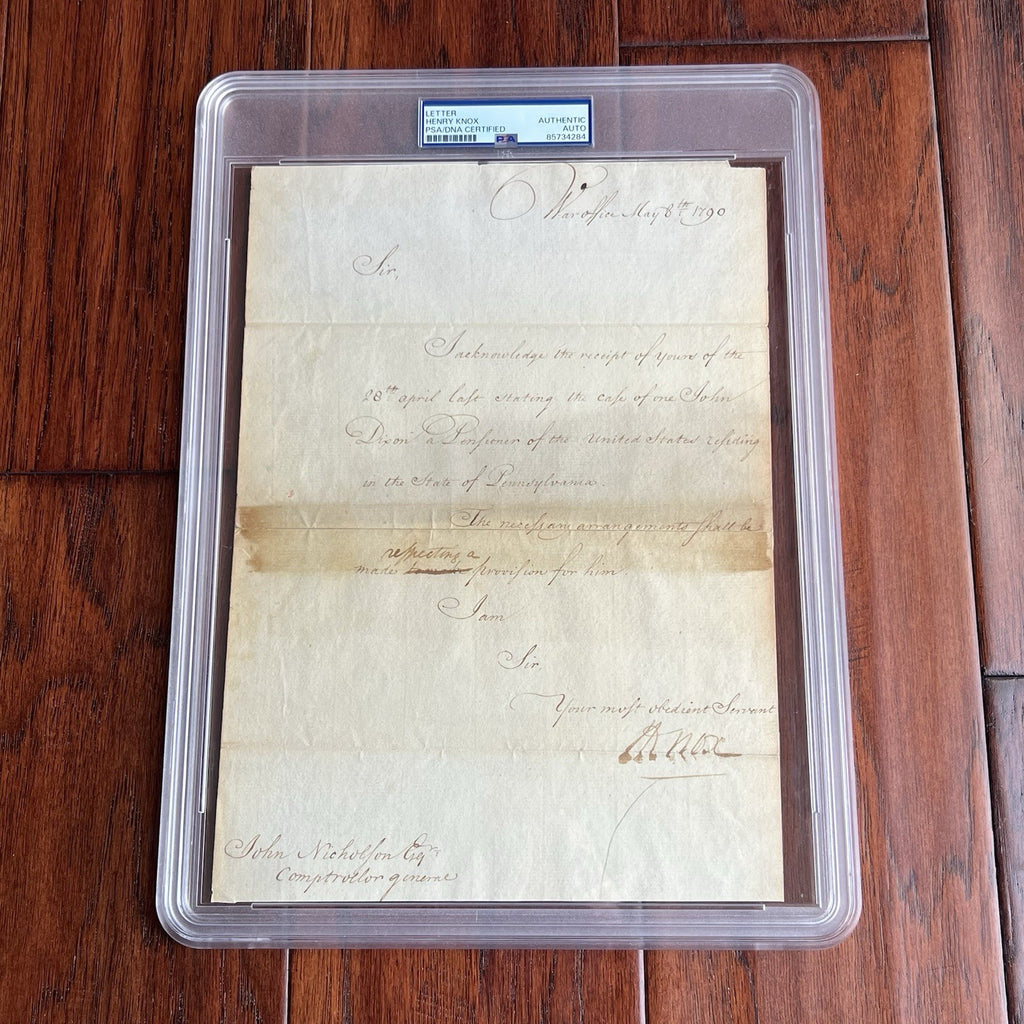 LETTER
HENRY KNOX
PSA/DNA CERTIFIED
AUTHENTIC
AUTO
85734284
PSA
War office May 8th 1790
Sir,
I acknowledge the receipt of yours of the
28th april last stating the case of one John
Dixon a Pensioner of the United States residing
in the State of Pennsylvania.
The necessary arrangements shall be
respecting a
made provision for him.
I am
Sir,
Your most obedient Servant
HKnox
John Nicholson Esqr
Comptrollor general